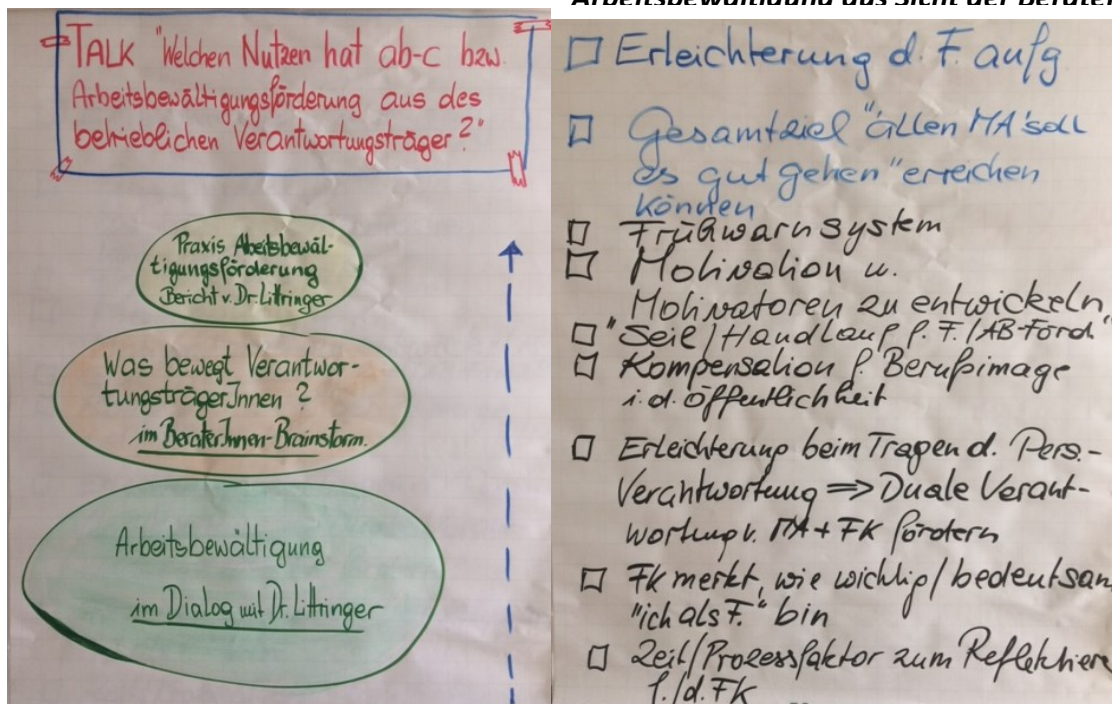 Arbeitsbewältigung aus Sicht der Berater
TALK "Welchen Nutzen hat ab-c bzw.
Arbeitsbewältigungsförderung aus des
behieblichen Verantwortungsträger?"
Praxis Abeitsbewäl-
tigungsförderung
Bericht v. Dr. Littringer
Was bewegt Verantwor-
tungsträgerInnen?
im BeraterInnen-Brainstorm.
Arbeitsbewältigung
im Dialog mit Dr. Littringer
Erleichterung d. F. aufg
Gesamtziel "allen MA' soll
es gut gehen" erreichen
können
Frühwarnsystem
Motivation u.
Motivatoren zu entwickeln
"Seil/Handlauf f. F./AB-Förd."
Kompensation f. Berufsimage
i.d. Öffentlichkeit
Erleichterung beim Tragen d. Pers.-
Verantwortung => Duale Verant-
wortung v. MA + FK fördern
FK merkt, wie wichtig/bedeutsam
"ich als F." bin
Zeit/Prozessfaktor zum Reflektiere
f./d. FK